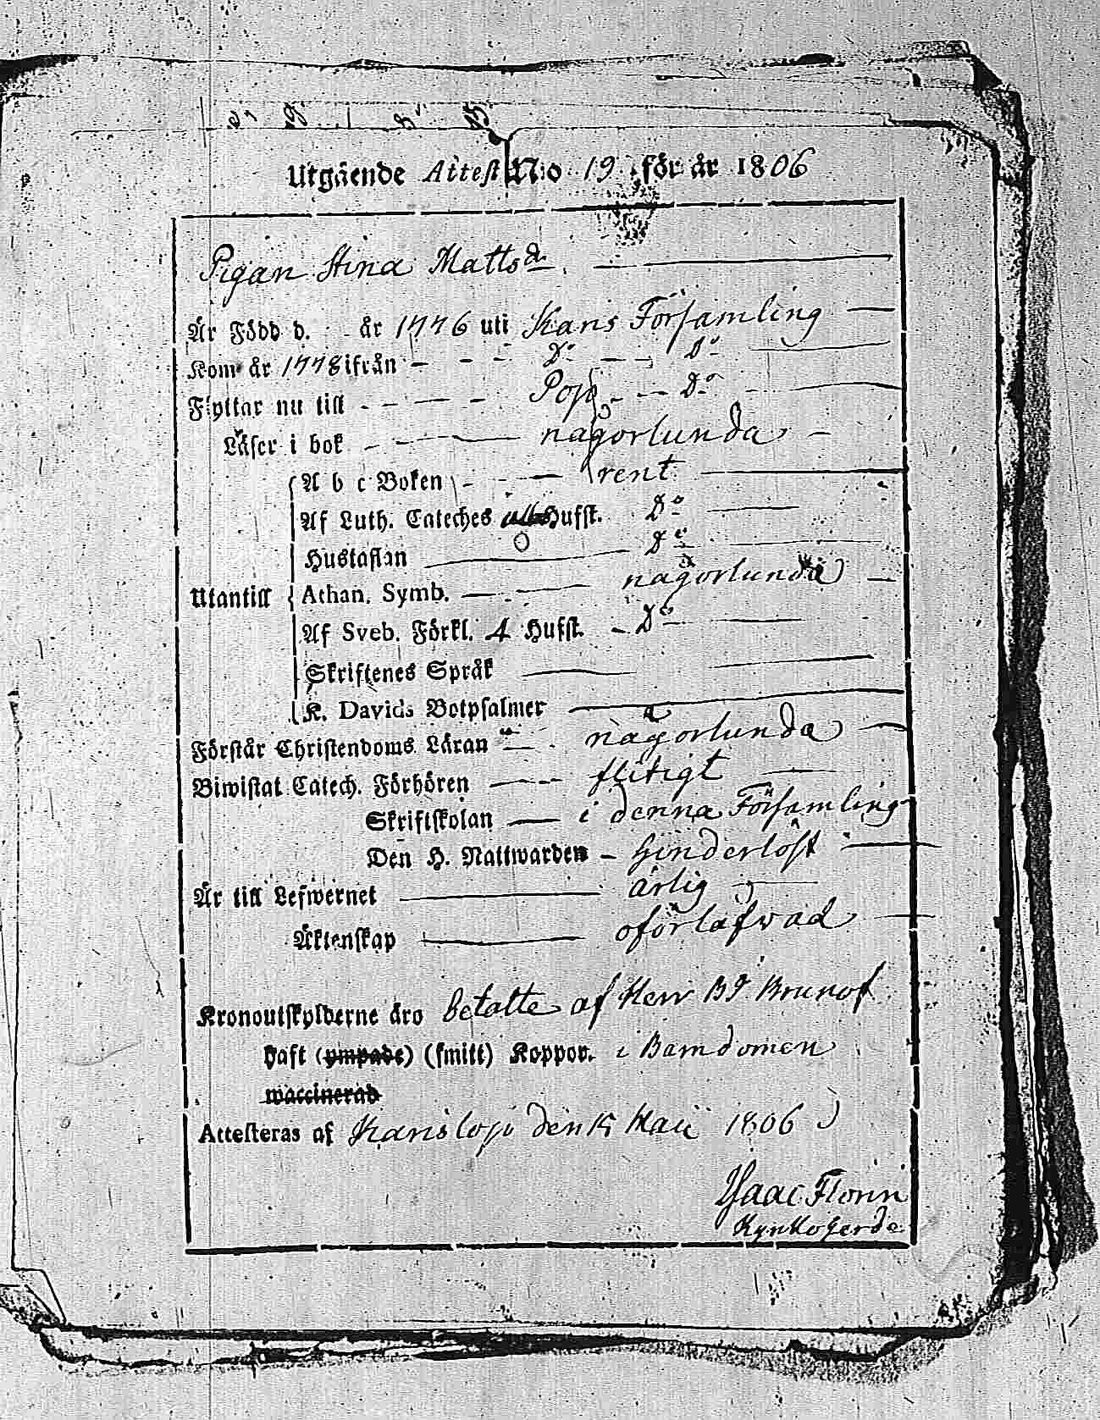 Utgående Attest N:o 19 för år 1806
Pigan Stina Mattsdr.
Är Född d. år 1776 uti Karis Församling
Kom år 1778 ifrån Do Do
Flyttar nu till Pojo Do
Läser i bok någorlunda
A b c Boken rent
Af Luth. Cateches alla Hufst. Do
Hustaflan Do
Utantill Athan. Symb. någorlunda
Af Sveb. Förkl. 4 Hufst. Do
Skriftenes Språk
K. Davids Botpsalmer
Förstår Christendoms Läran någorlunda
Biwistat Catech. Förhören flitigt
Skriftskolan i denna Församling
Den H. Nattwarden hinderlöst
Är till Lefwernet ärlig
Äktenskap oförlåfvad
Kronoutskylderne äro betalte af Herr Bd Brunof
Haft (ympade) (smitt) Koppor. i Barndomen
waccinerad
Attesteras af Karislojo den 15 Maii 1806
Isaac Florin
Kyrkoherde